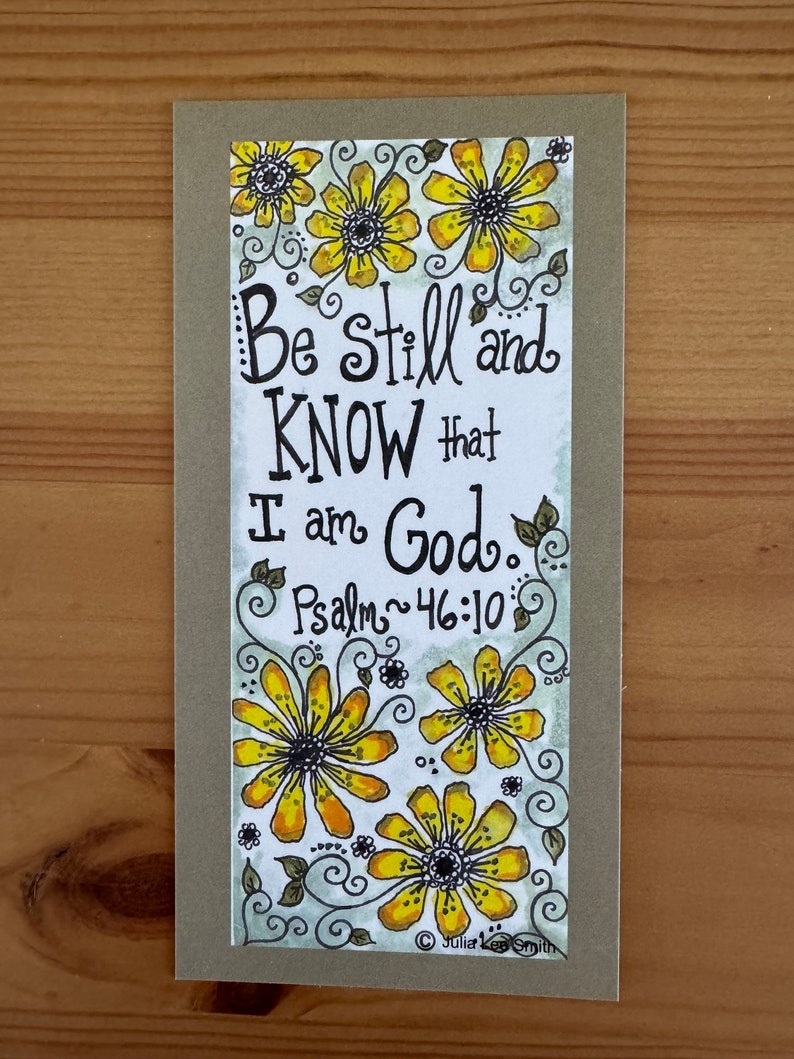 Be still and
KNOW that
I am God.
Psalm~46:10
© Julia Lee Smith